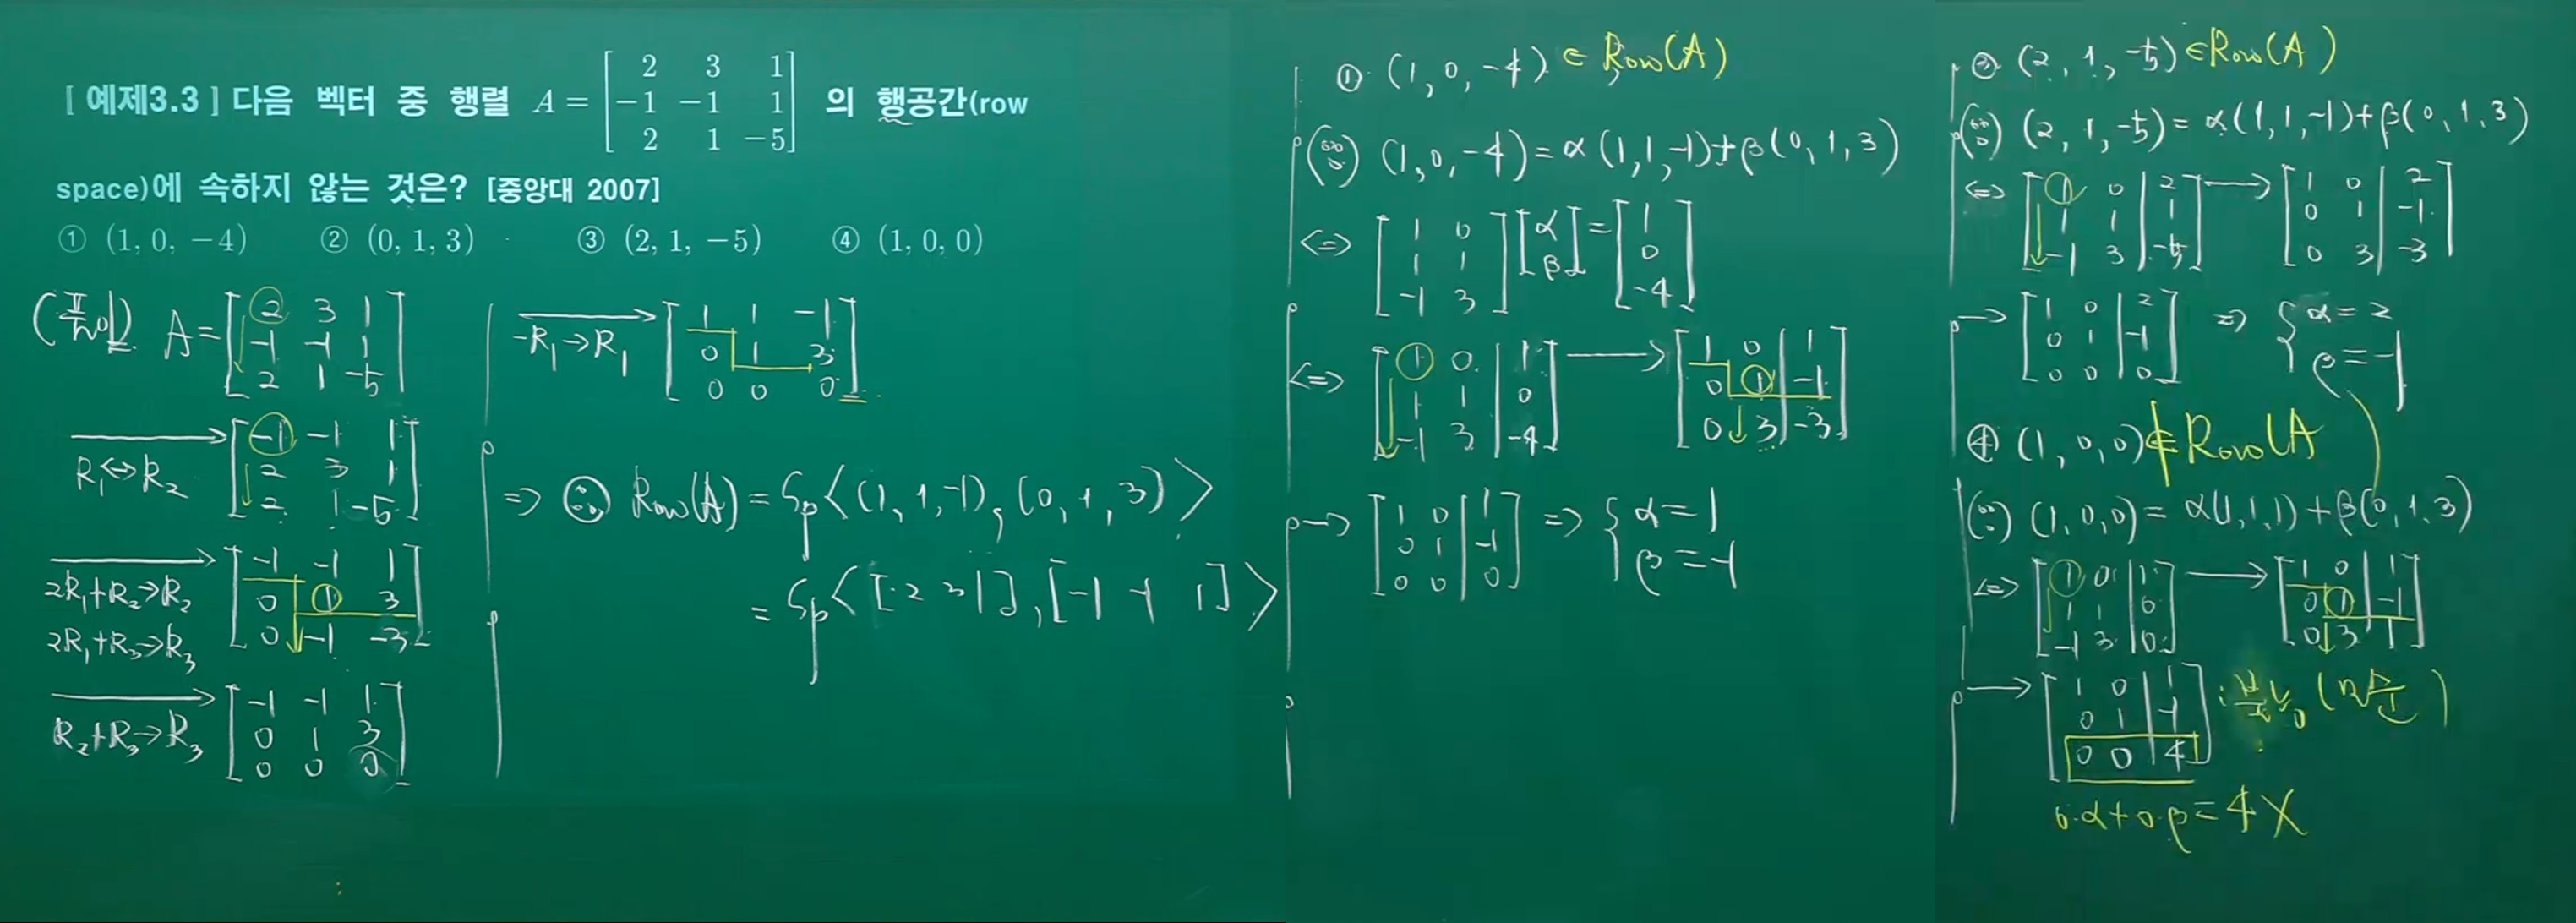 [ 예제3.3 ] 다음 벡터 중 행렬 A = [ 2 3 1 ; -1 -1 1 ; 2 1 -5 ] 의 행공간(row
space)에 속하지 않는 것은? [중앙대 2007]
① (1, 0, -4) ② (0, 1, 3) ③ (2, 1, -5) ④ (1, 0, 0)
(풀이) A = [ 2 3 1 ; -1 -1 1 ; 2 1 -5 ]
R₁↔R₂ → [ -1 -1 1 ; 2 3 1 ; 2 1 -5 ]
2R₁+R₂→R₂
2R₁+R₃→R₃ → [ -1 -1 1 ; 0 1 3 ; 0 -1 -3 ]
R₂+R₃→R₃ → [ -1 -1 1 ; 0 1 3 ; 0 0 0 ]
-R₁→R₁ → [ 1 1 -1 ; 0 1 3 ; 0 0 0 ]
⇒ ∴ Row(A) = Sp< (1, 1, -1), (0, 1, 3) >
= Sp< [2 3 1], [-1 -1 1] >
① (1, 0, -4) ∈ Row(A)
(∵) (1, 0, -4) = α(1, 1, -1) + β(0, 1, 3)
⇔ [ 1 0 ; 1 1 ; -1 3 ] [ α ; β ] = [ 1 ; 0 ; -4 ]
⇔ [ 1 0 | 1 ; 1 1 | 0 ; -1 3 | -4 ] → [ 1 0 | 1 ; 0 1 | -1 ; 0 3 | -3 ]
→ [ 1 0 | 1 ; 0 1 | -1 ; 0 0 | 0 ] ⇒ { α = 1
β = -1
③ (2, 1, -5) ∈ Row(A)
(∵) (2, 1, -5) = α(1, 1, -1) + β(0, 1, 3)
⇔ [ 1 0 | 2 ; 1 1 | 1 ; -1 3 | -5 ] → [ 1 0 | 2 ; 0 1 | -1 ; 0 3 | -3 ]
→ [ 1 0 | 2 ; 0 1 | -1 ; 0 0 | 0 ] ⇒ { α = 2
β = -1
④ (1, 0, 0) ∉ Row(A)
(∵) (1, 0, 0) = α(1, 1, 1) + β(0, 1, 3)
⇔ [ 1 0 | 1 ; 1 1 | 0 ; -1 3 | 0 ] → [ 1 0 | 1 ; 0 1 | -1 ; 0 3 | 1 ]
→ [ 1 0 | 1 ; 0 1 | -1 ; 0 0 | 4 ] : 불능 (모순)
0·α + 0·β = 4 X